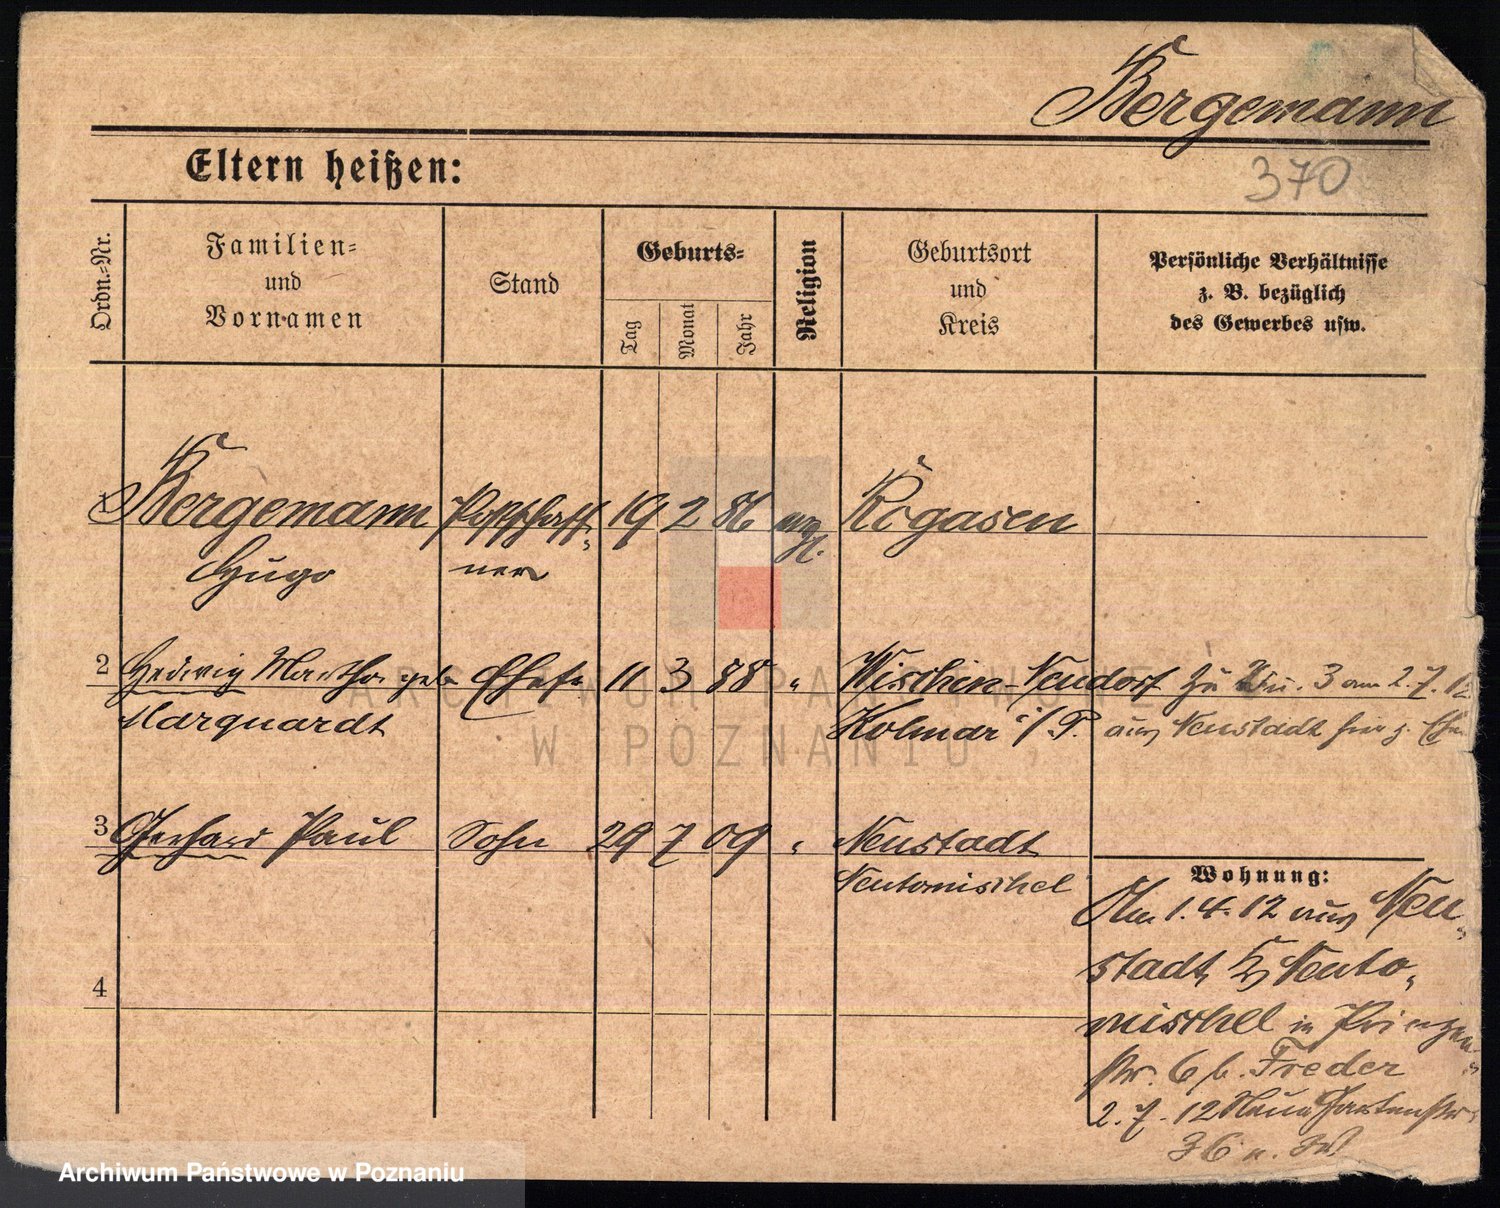 Bergemann
370
Eltern heißen:
Ordn.-Nr.
Familien-
und
Vornamen
Stand
Geburts-
Tag
Monat
Jahr
Religion
Geburtsort
und
Kreis
Persönliche Verhältnisse
z. B. bezüglich
des Gewerbes usw.
1 Bergemann Postschaff- 19 2 86 evgl. Rogasen
Hugo ner
2 Hedwig Martha geb. Ehefr. 11 3 88 " Wischin-Neudorf zu 3 am 2.7.12
Marquardt Kolmar i/P. aus Neustadt hier z.
3 Gerhard Paul Sohn 29 7 09 " Neustadt
Neutomischel
4
Wohnung:
Am 1.4.12 aus Neu-
stadt, Neuto-
mischel in Prinzen-
str. 6 b. Freder
2.7.12 Neue Gartenstr.
36
ARCHIWUM PAŃSTWOWE
W POZNANIU
Archiwum Państwowe w Poznaniu